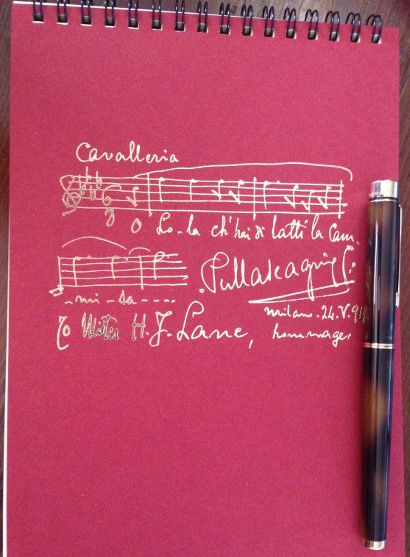 Cavalleria
O Lo-la ch'hai di latti la cam-
-mi-sa----
P Mascagni
Milano. 24.V.
To Mister H. J. Lane, hommages